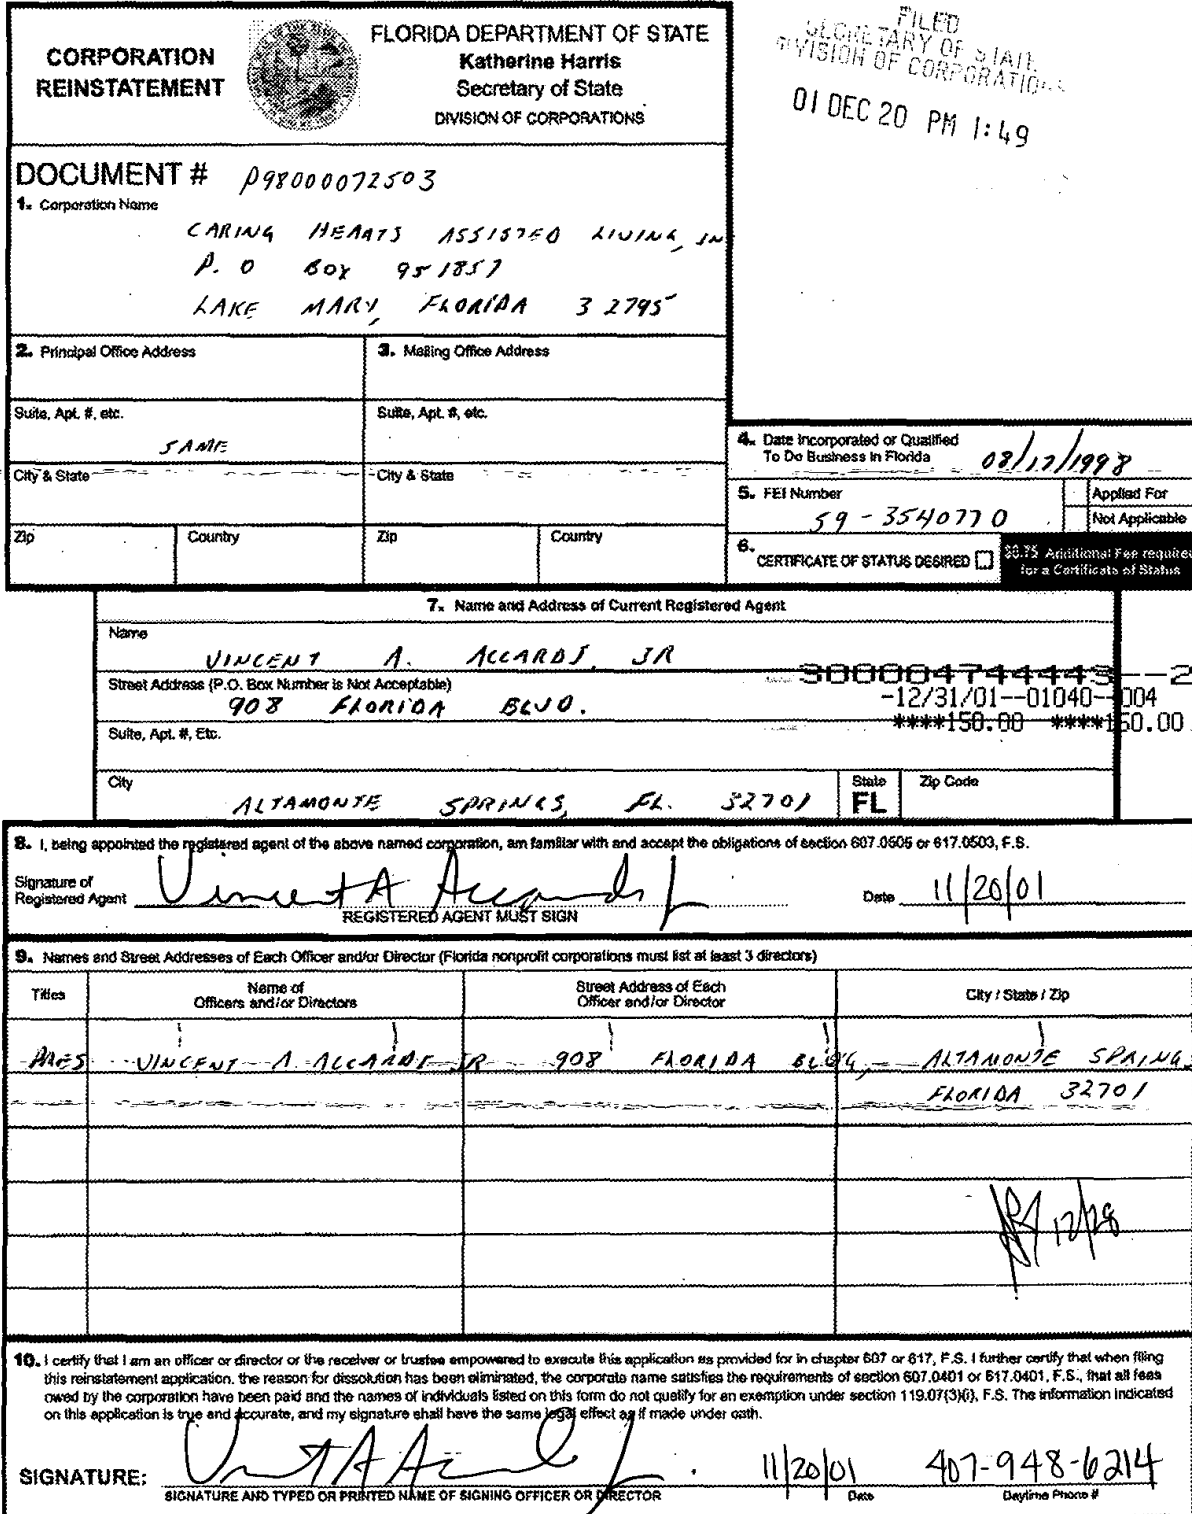 CORPORATION
REINSTATEMENT
FLORIDA DEPARTMENT OF STATE
Katherine Harris
Secretary of State
DIVISION OF CORPORATIONS
FILED
SECRETARY OF STATE
DIVISION OF CORPORATIONS
01 DEC 20 PM 1:49
DOCUMENT # P98000072503
1. Corporation Name
CARING HEARTS ASSISTED LIVING, IN
P. O BOX 951857
LAKE MARY, FLORIDA 32795
2. Principal Office Address
3. Mailing Office Address
Suite, Apt. #, etc.
SAME
Suite, Apt. #, etc.
City & State
City & State
Zip Country Zip Country
4. Date Incorporated or Qualified
To Do Business in Florida 08/17/1998
5. FEI Number
59-3540770
Applied For
Not Applicable
6. CERTIFICATE OF STATUS DESIRED
$8.75 Additional Fee required
for a Certificate of Status
7. Name and Address of Current Registered Agent
Name
VINCENT A. ACCARDI, JR
300004744443--2
Street Address (P.O. Box Number is Not Acceptable)
908 FLORIDA BLVD.
-12/31/01--01040--004
****150.00 ****150.00
Suite, Apt. #, Etc.
City
ALTAMONTE SPRINGS, FL. 32701
State
FL
Zip Code
8. I, being appointed the registered agent of the above named corporation, am familiar with and accept the obligations of section 607.0505 or 617.0503, F.S.
Signature of
Registered Agent Vincent A Accardi Jr
REGISTERED AGENT MUST SIGN
Date 11/20/01
9. Names and Street Addresses of Each Officer and/or Director (Florida nonprofit corporations must list at least 3 directors)
Titles
Name of
Officers and/or Directors
Street Address of Each
Officer and/or Director
City / State / Zip
PRES VINCENT A. ACCARDI JR 908 FLORIDA ALTAMONTE SPRINGS
FLORIDA 32701
12/28
10. I certify that I am an officer or director or the receiver or trustee empowered to execute this application as provided for in chapter 607 or 617, F.S. I further certify that when filing
this reinstatement application, the reason for dissolution has been eliminated, the corporate name satisfies the requirements of section 607.0401 or 617.0401, F.S., that all fees
owed by the corporation have been paid and the names of individuals listed on this form do not qualify for an exemption under section 119.07(3)(i), F.S. The information indicated
on this application is true and accurate, and my signature shall have the same legal effect as if made under oath.
SIGNATURE: 11/20/01 407-948-6214
SIGNATURE AND TYPED OR PRINTED NAME OF SIGNING OFFICER OR DIRECTOR Date Daytime Phone #